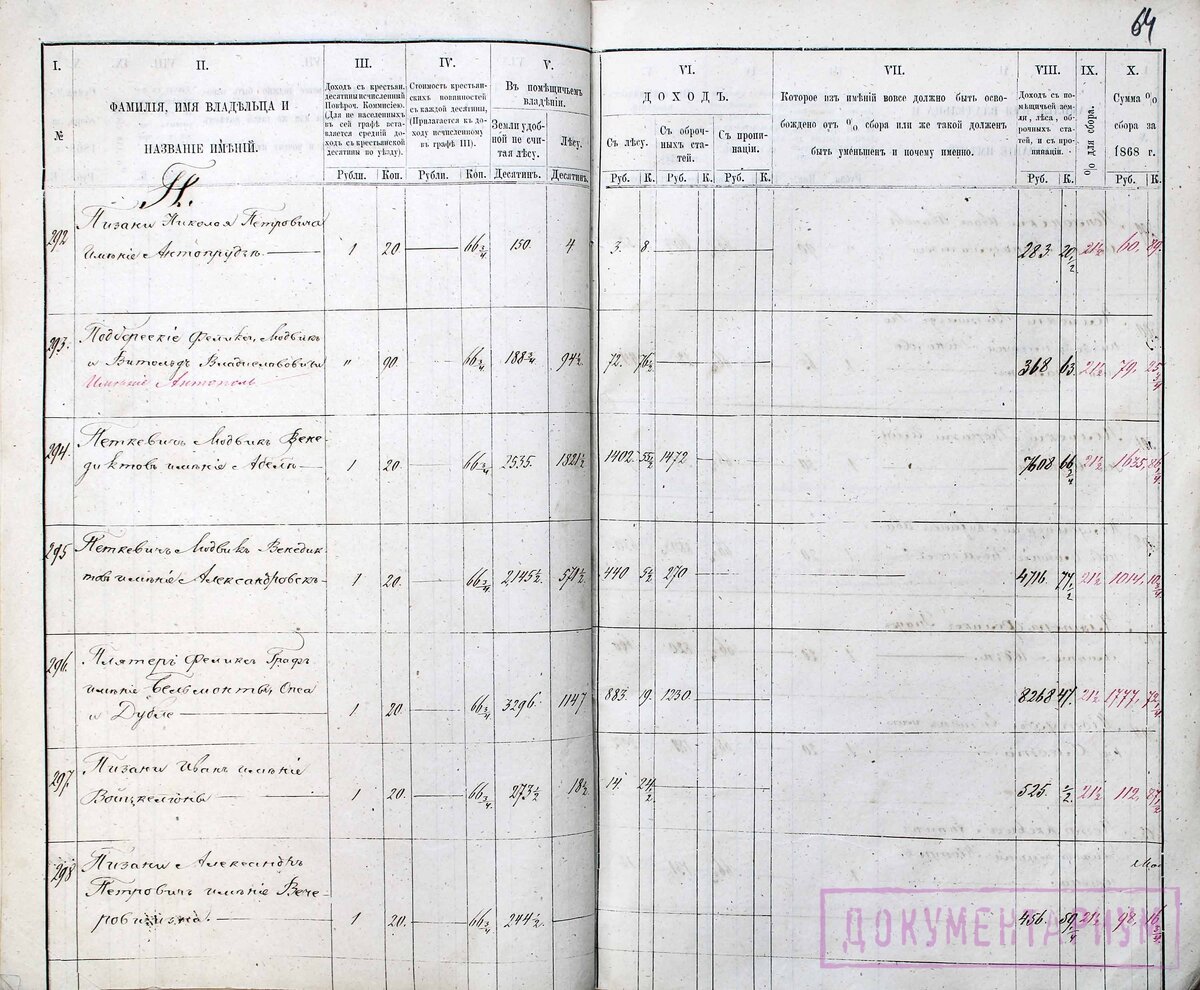 64
I.
II.
III.
IV.
V.
VI.
VII.
VIII.
IX.
X.
№
ФАМИЛІЯ, ИМЯ ВЛАДѢЛЬЦА И
НАЗВАНІЕ ИМѢНІЙ.
Доходъ съ крестьян.
десятины исчисленный
Повѣроч. Коммисіею.
(Для не населенныхъ
въ сей графѣ вста-
вляется средній до-
ходъ съ крестьянской
десятины по уѣзду).
Стоимость крестьян-
скихъ повинностей
съ каждой десятины,
(Прилагается къ до-
ходу исчисленному
въ графѣ III).
Въ помѣщичьемъ
владѣніи.
Земли удоб-
ной не счи-
тая лѣсу.
Лѣсу.
ДОХОДЪ.
Съ лѣсу.
Съ оброч-
ныхъ ста-
тей.
Съ пропи-
націи.
Которое изъ имѣній вовсе должно быть осво-
бождено отъ % сбора или же такой долженъ
быть уменьшенъ и почему именно.
Доходъ съ по-
мѣщичьей зем-
ли, лѣса, об-
рочныхъ ста-
тей, и съ про-
пинаціи.
% для сбора.
Сумма %
сбора за
1868 г.
Рубли. Коп. Рубли. Коп. Десятинъ. Десятинъ.
Руб. К. Руб. К. Руб. К. Руб. К. Руб. К.
П.
292 Пизани Николоя Петровича
имѣніе Антопрудзъ 1 20. 66¾ 150. 4 3. 8. 283. 20½ 21½ 60. 89.
293. Подберескіе Феликсъ, Людвикъ
и Витольдъ Владиславовичи " 90. 66¾ 188¾ 94½ 72. 76½ 368 63. 21½ 79. 25¾
Имѣніе Антополь
294. Петкевичъ Людвикъ Вене-
диктовъ имѣніе Абель 1 20. 66¾ 2535. 1821½ 1402. 55½ 1472 7608 66¾ 21½ 1635. 86¼
295 Петкевичъ Людвикъ Венедик-
товъ имѣніе Александровскъ 1 20. 66¾ 2145½ 571½ 440 5½ 270 4716. 77½ 21½ 1014. 10¾
296. Плятеръ Феликсъ Графъ
имѣніе Бельмонты, Опса
и Дубле 1 20. 66¾ 3296. 1147 883. 19. 1230 8268 47. 21½ 1777. 72¼
297. Пизани Иванъ имѣніе
Войцкелюны 1 20. 66¾ 273½ 18½ 14. 24½ 525. ½ 21½ 112. 87½
298 Пизани Александръ
Петровичъ имѣніе Вече-
ровщизна. 1 20. 66¾ 244½ 456. 59¼ 21½ 98. 16¾
ДОКУМЕНТАРИУМ